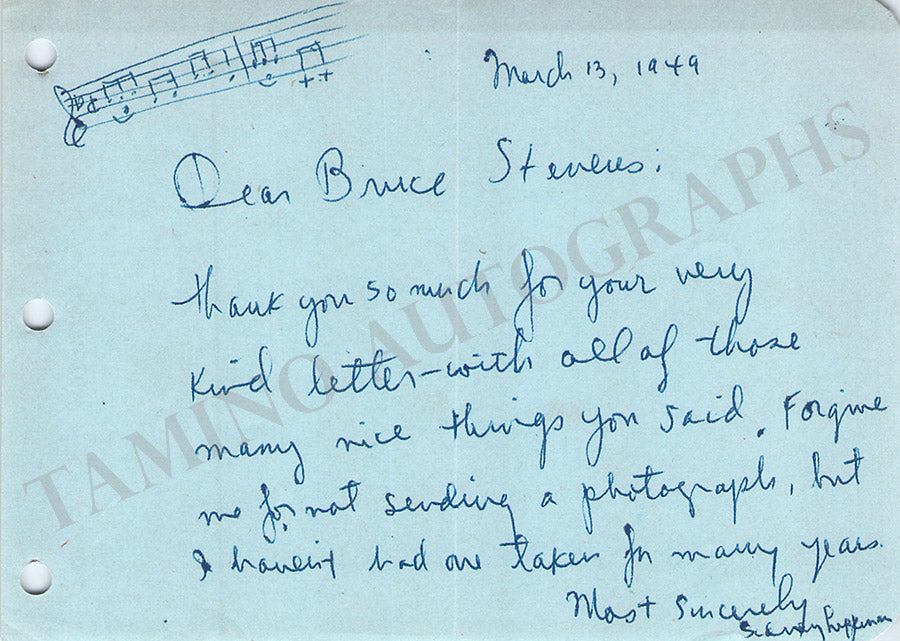 March 13, 1949
Dear Bruce Stevens:
Thank you so much for your very
kind letter–with all of those
many nice things you said. Forgive
me for not sending a photograph, but
I haven't had one taken for many years.
Most Sincerely
TAMINO AUTOGRAPHS